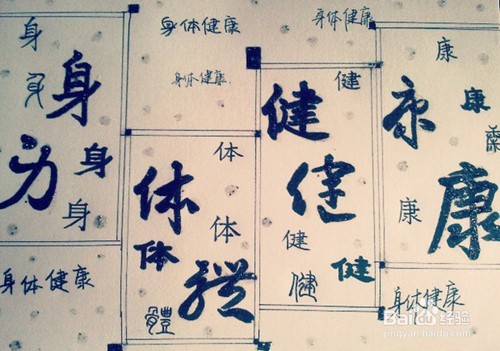 身
身
身
身
身
身体健康
身体健康
身体健康
体
体
体
体
體
身体健康
健
健
健
健
健
健
康
康
康
康
康
身体健康
Bai 经验
jingyan.baidu.com